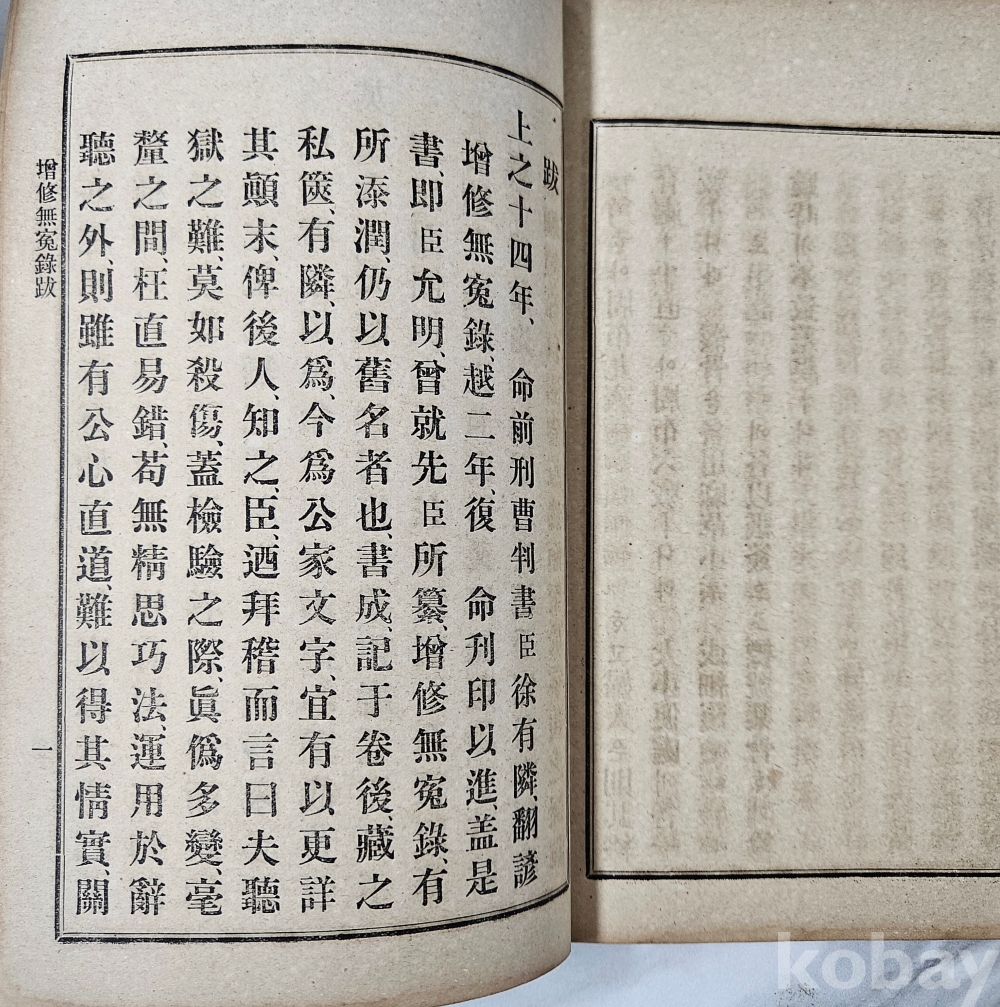 跋
上之十四年、 命前刑曹判書臣徐有隣、翻諺
增修無寃錄、越二年、復 命刊印以進、盖是
書、即臣允明、曾就先臣所纂、增修無寃錄、有
所添潤、仍以舊名者也、書成、記于卷後、藏之
私篋、有隣、以爲、今爲公家文字、宜有以更詳
其顚末、俾後人、知之、臣、迺拜稽而言曰夫聽
獄之難、莫如殺傷、蓋檢驗之際、眞僞多變、毫
釐之間、枉直易錯、苟無精思巧法、運用於辭
聽之外、則雖有公心直道、難以得其情實、關
增修無寃錄跋
一
kobay